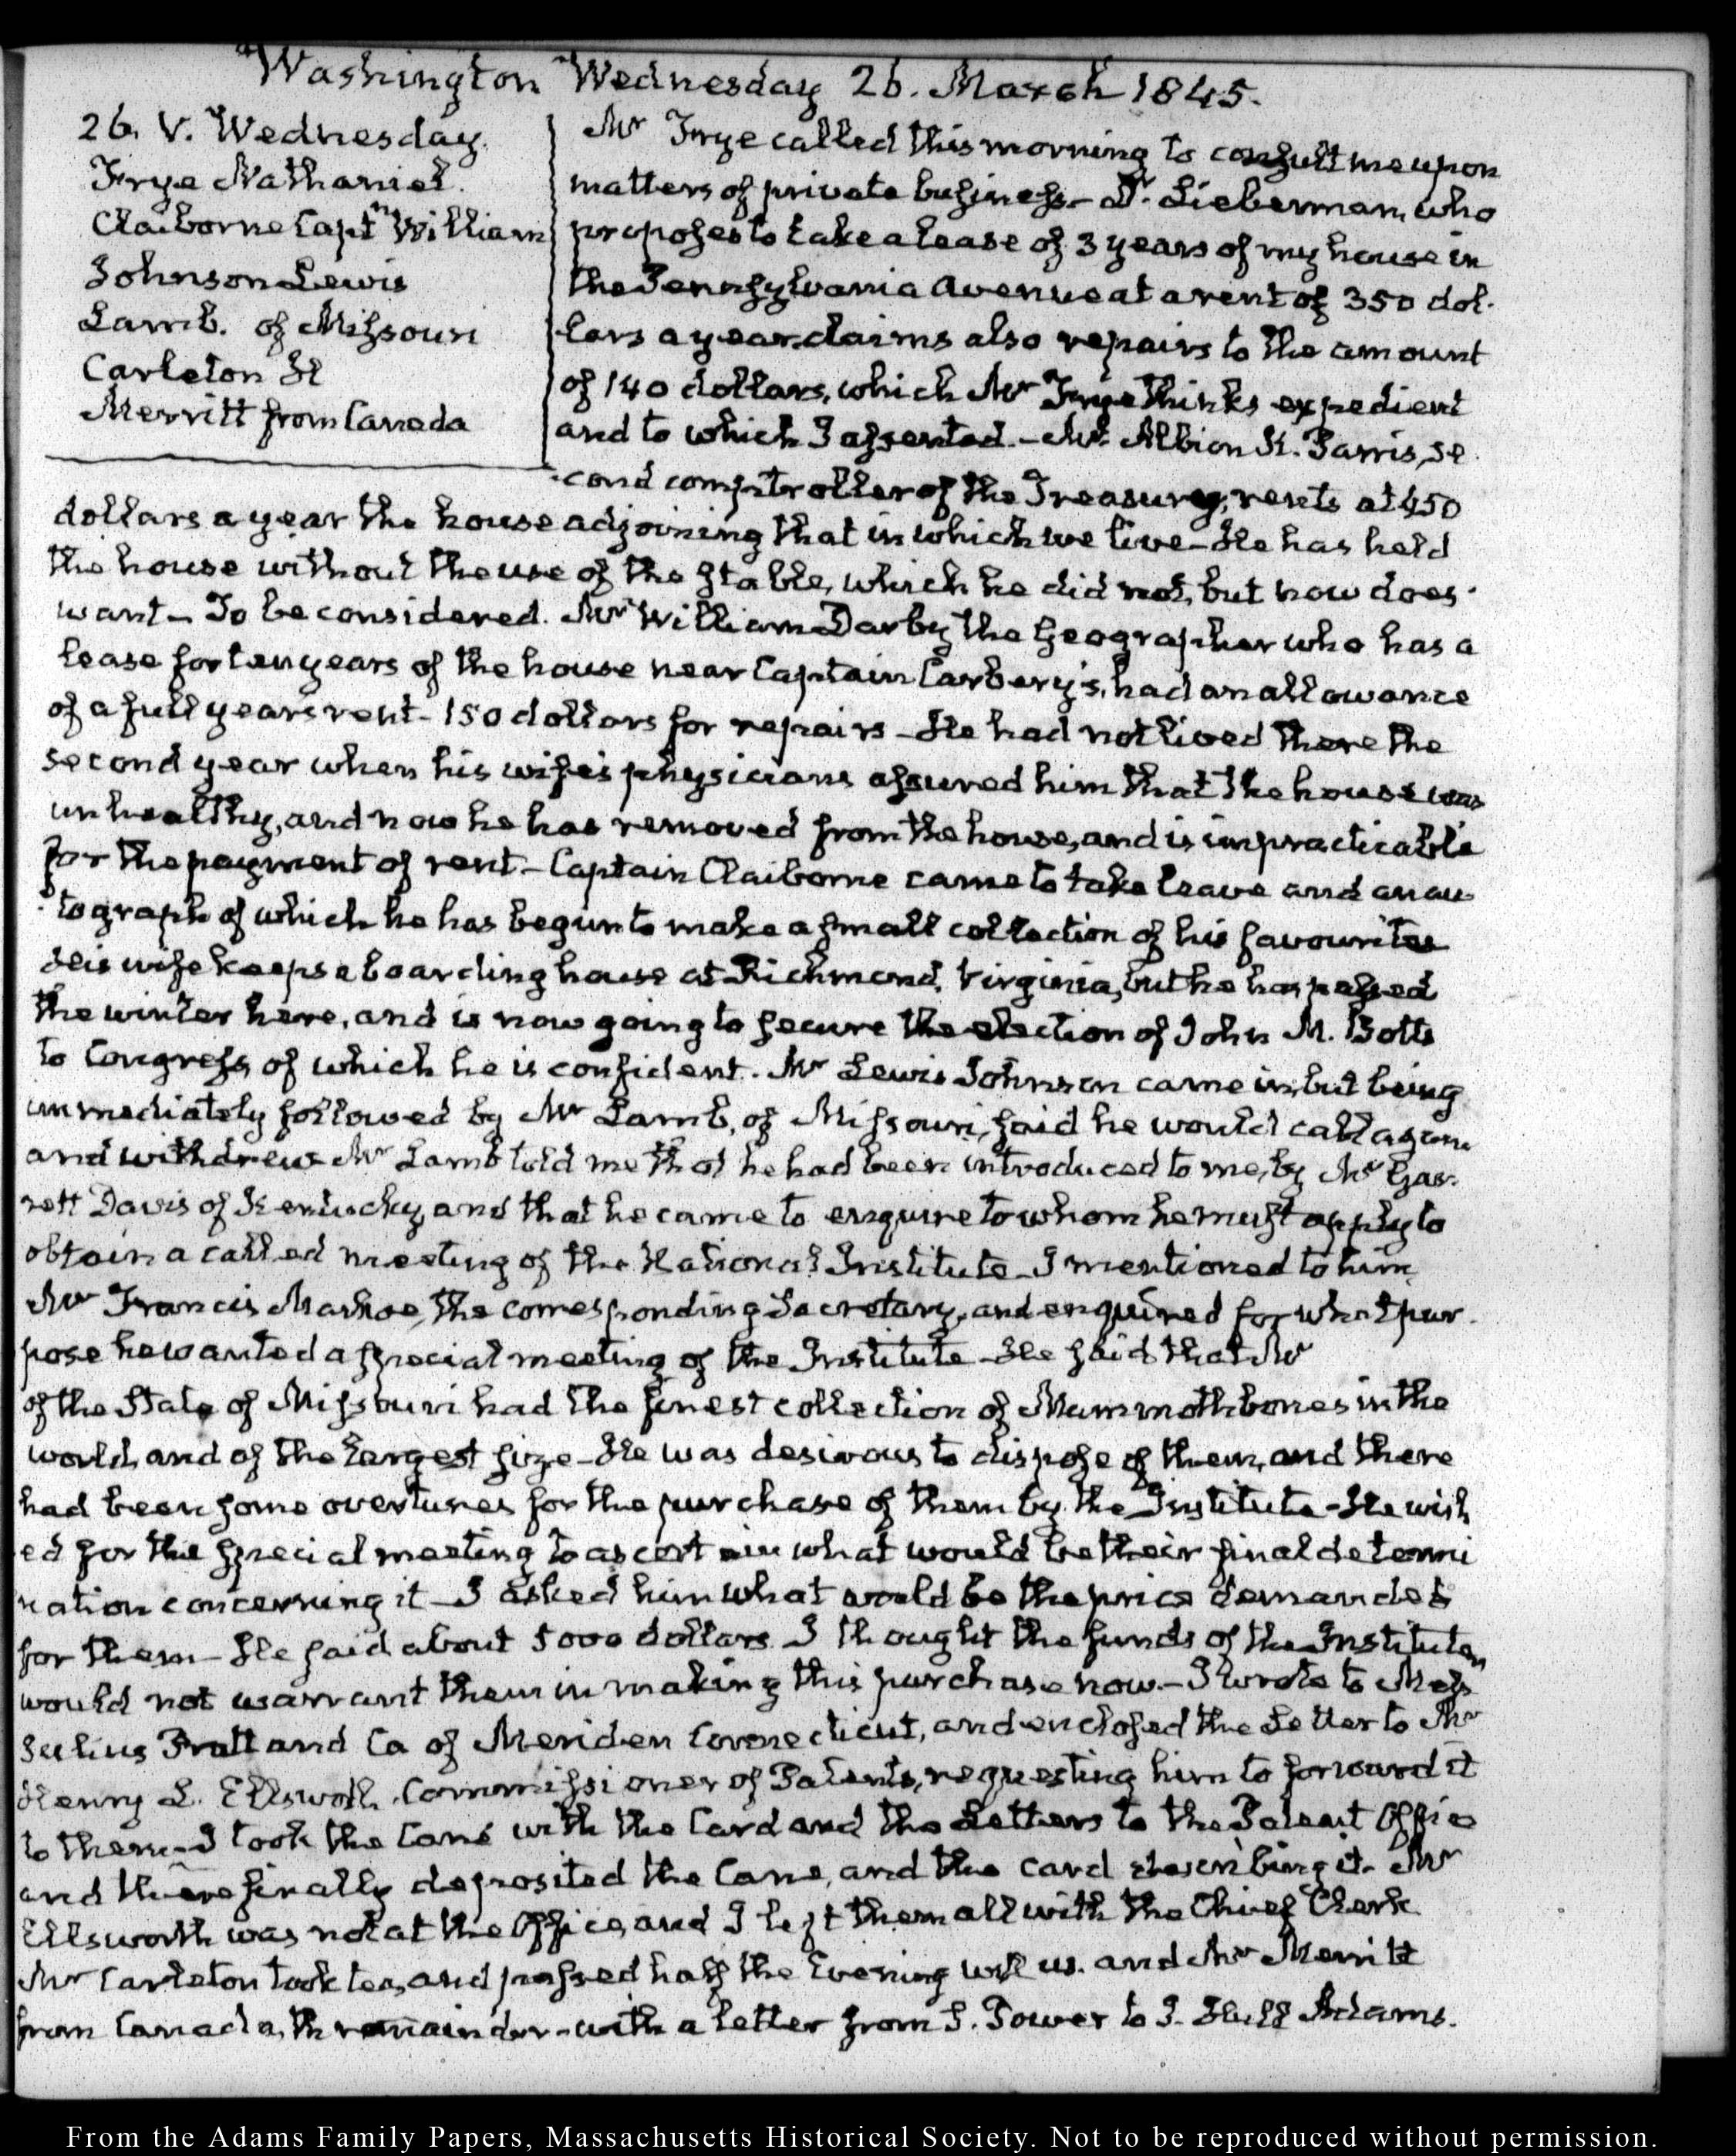 Washington Wednesday 26. March 1845.
26. V. Wednesday.
Frye Nathaniel.
Claiborne Captn William
Johnson Lewis
Lamb. of Missouri
Carleton H
Merritt from Canada
Mr Frye called this morning to consult me upon
matters of private business — Dr. Lieberman, who
proposes to take a lease of 3 years of my house in
the Pennsylvania Avenue at a rent of 350 dol-
lars a year, claims also repairs to the amount
of 140 dollars, which Mr Frye thinks expedient
and to which I assented. — Mr Albion K. Parris, se-
-cond comptroller of the Treasury, rents at 450
dollars a year the house adjoining that in which we live — He has held
the house without the use of the Stable, which he did not, but now does
want — To be considered. Mr William Darby the Geographer who has a
lease for ten years of the house near Captain Carbery's, had an allowance
of a full years rent — 150 dollars for repairs — He had not lived there the
second year when his wife's physicians assured him that the house was
unhealthy, and now he has removed from the house, and is impracticable
for the payment of rent — Captain Claiborne came to take leave and an au-
-tograph of which he has begun to make a small collection of his favourites
His wife keeps a boarding house at Richmond, Virginia, but he has passed
the winter here, and is now going to secure the election of John M. Botts
to Congress, of which he is confident. Mr Lewis Johnson came in, but being
immediately followed by Mr Lamb, of Missouri, said he would call again
and withdrew. Mr Lamb told me that he had been introduced to me, by Mr Gar-
rett Davis of Kentucky, and that he came to enquire to whom he must apply to
obtain a called meeting of the National Institute — I mentioned to him,
Mr Francis Markoe, the corresponding Secretary, and enquired for what pur-
pose he wanted a special meeting of the Institute — He said that Mr
of the State of Missouri had the finest collection of Mammoth bones in the
world, and of the largest size — He was desirous to dispose of them, and there
had been some overtures for the purchase of them by the Institute — He wish
ed for the special meeting to ascertain what would be their final determi
nation concerning it — I asked him what would be the price demanded
for them — He said about 5000 dollars. I thought the funds of the Institution
would not warrant them in making this purchase now. — I wrote to Mess
Julius Pratt and Co of Meriden Connecticut, and enclosed the Letter to Mr
Henry L. Ellsworth, Commissioner of Patents, requesting him to forward it
to them — I took the Cane with the Card and the Letters to the Patent Office
and there finally deposited the Cane, and the card describing it. Mr
Ellsworth was not at the Office, and I left them all with the Chief Clerk
Mr Carleton took tea, and passed half the Evening with us. and Mr Merritt
from Canada, th remainder — with a letter from F. Tower to I. Hull Adams.
From the Adams Family Papers, Massachusetts Historical Society. Not to be reproduced without permission.